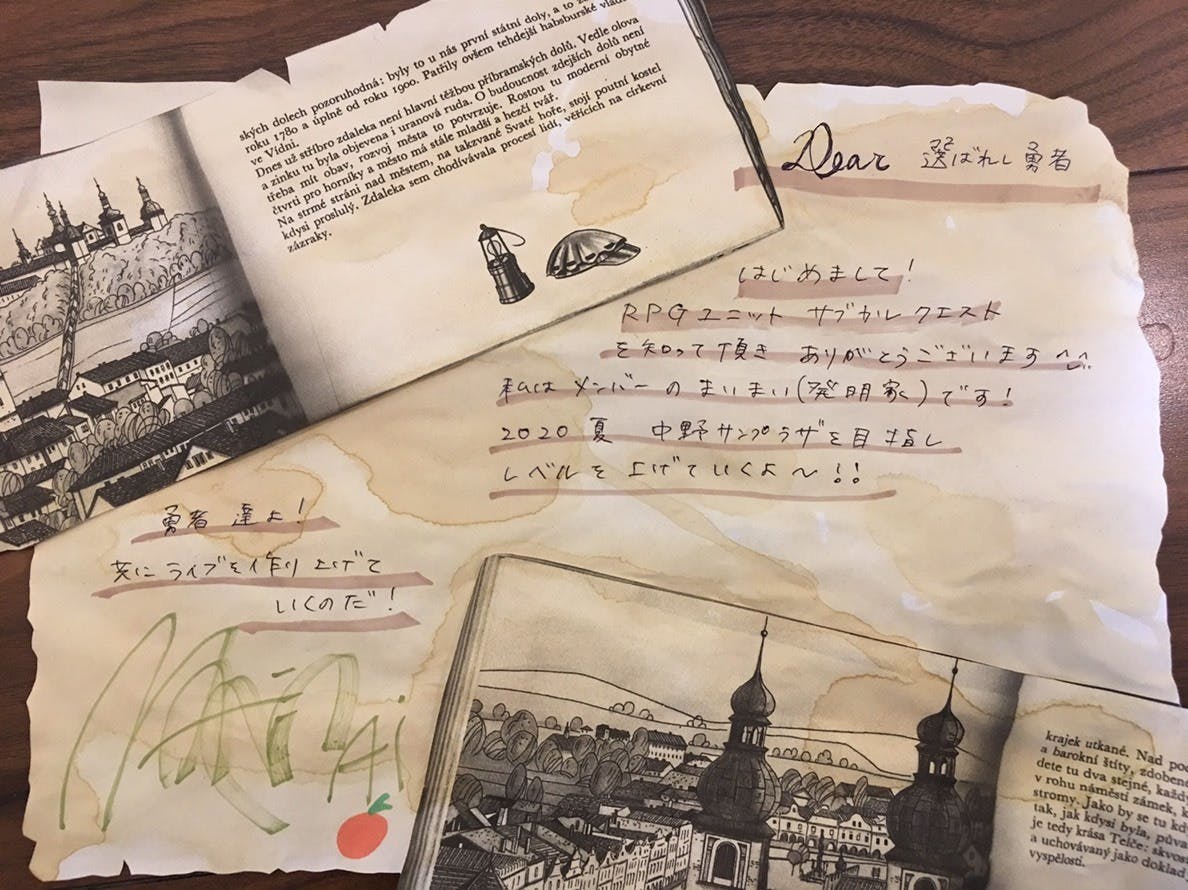 ských dolech pozoruhodná: byly to u nás první státní doly, a to
roku 1780 a úplně od roku 1900. Patřily ovšem tehdejší habsburské
ve Vídni.
Dnes už stříbro zdaleka není hlavní těžbou příbramských dolů. Vedle olova
a zinku tu byla objevena i uranová ruda. O budoucnost zdejších dolů není
třeba mít obav, rozvoj města to potvrzuje. Rostou tu moderní obytné
čtvrti pro horníky a město má stále mladší a hezčí tvář.
Na strmé stráni nad městem, na takzvané Svaté hoře, stojí poutní kostel
kdysi proslulý. Zdaleka sem chodívala procesí lidí, věřících na církevní
zázraky.
Dear 選ばれし勇者
はじめまして!
RPGユニット サブカルクエスト
を知って頂き ありがとうございます
私は メンバーの まいまい(発明家)です!
2020 夏 中野サンプラザを目指し
レベルを上げていくよ〜!!
勇者達よ!
共にライブを作り上げて
いくのだ!
krajek utkané. Nad
a barokní štíty, zdobené
dete tu dva stejné,
v rohu náměstí zámek,
stromy. Jako by se tu
tak, jak kdysi byla,
je tedy krása Telče:
a uchovávaný jako doklad
vyspělosti.